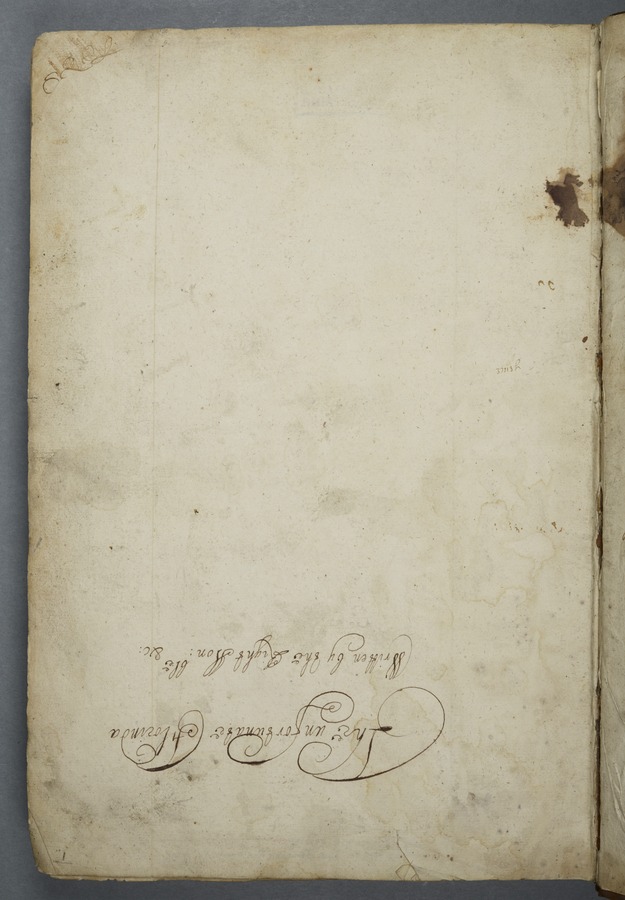 The unfortunate Florinda
Written by the Right Hon: ble &c: